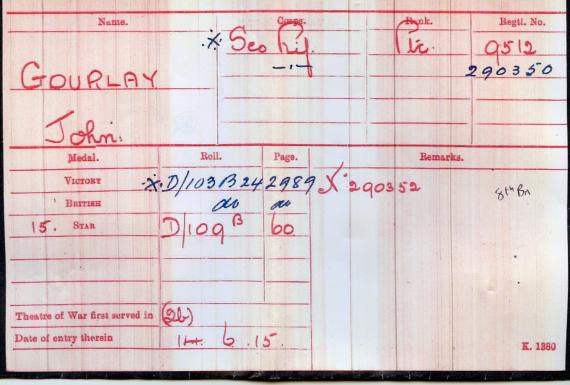 Name. Corps. Rank. Regtl. No.
GOURLAY X. Sco Rif. Pte. 9512
-"- 290350
John.
Medal. Roll. Page. Remarks.
VICTORY X. D/103B24 2989 X 290352 8th Bn
BRITISH do do
15. STAR D/109 B 60
Theatre of War first served in (2b)
Date of entry therein 14. 6. 15.
K. 1380